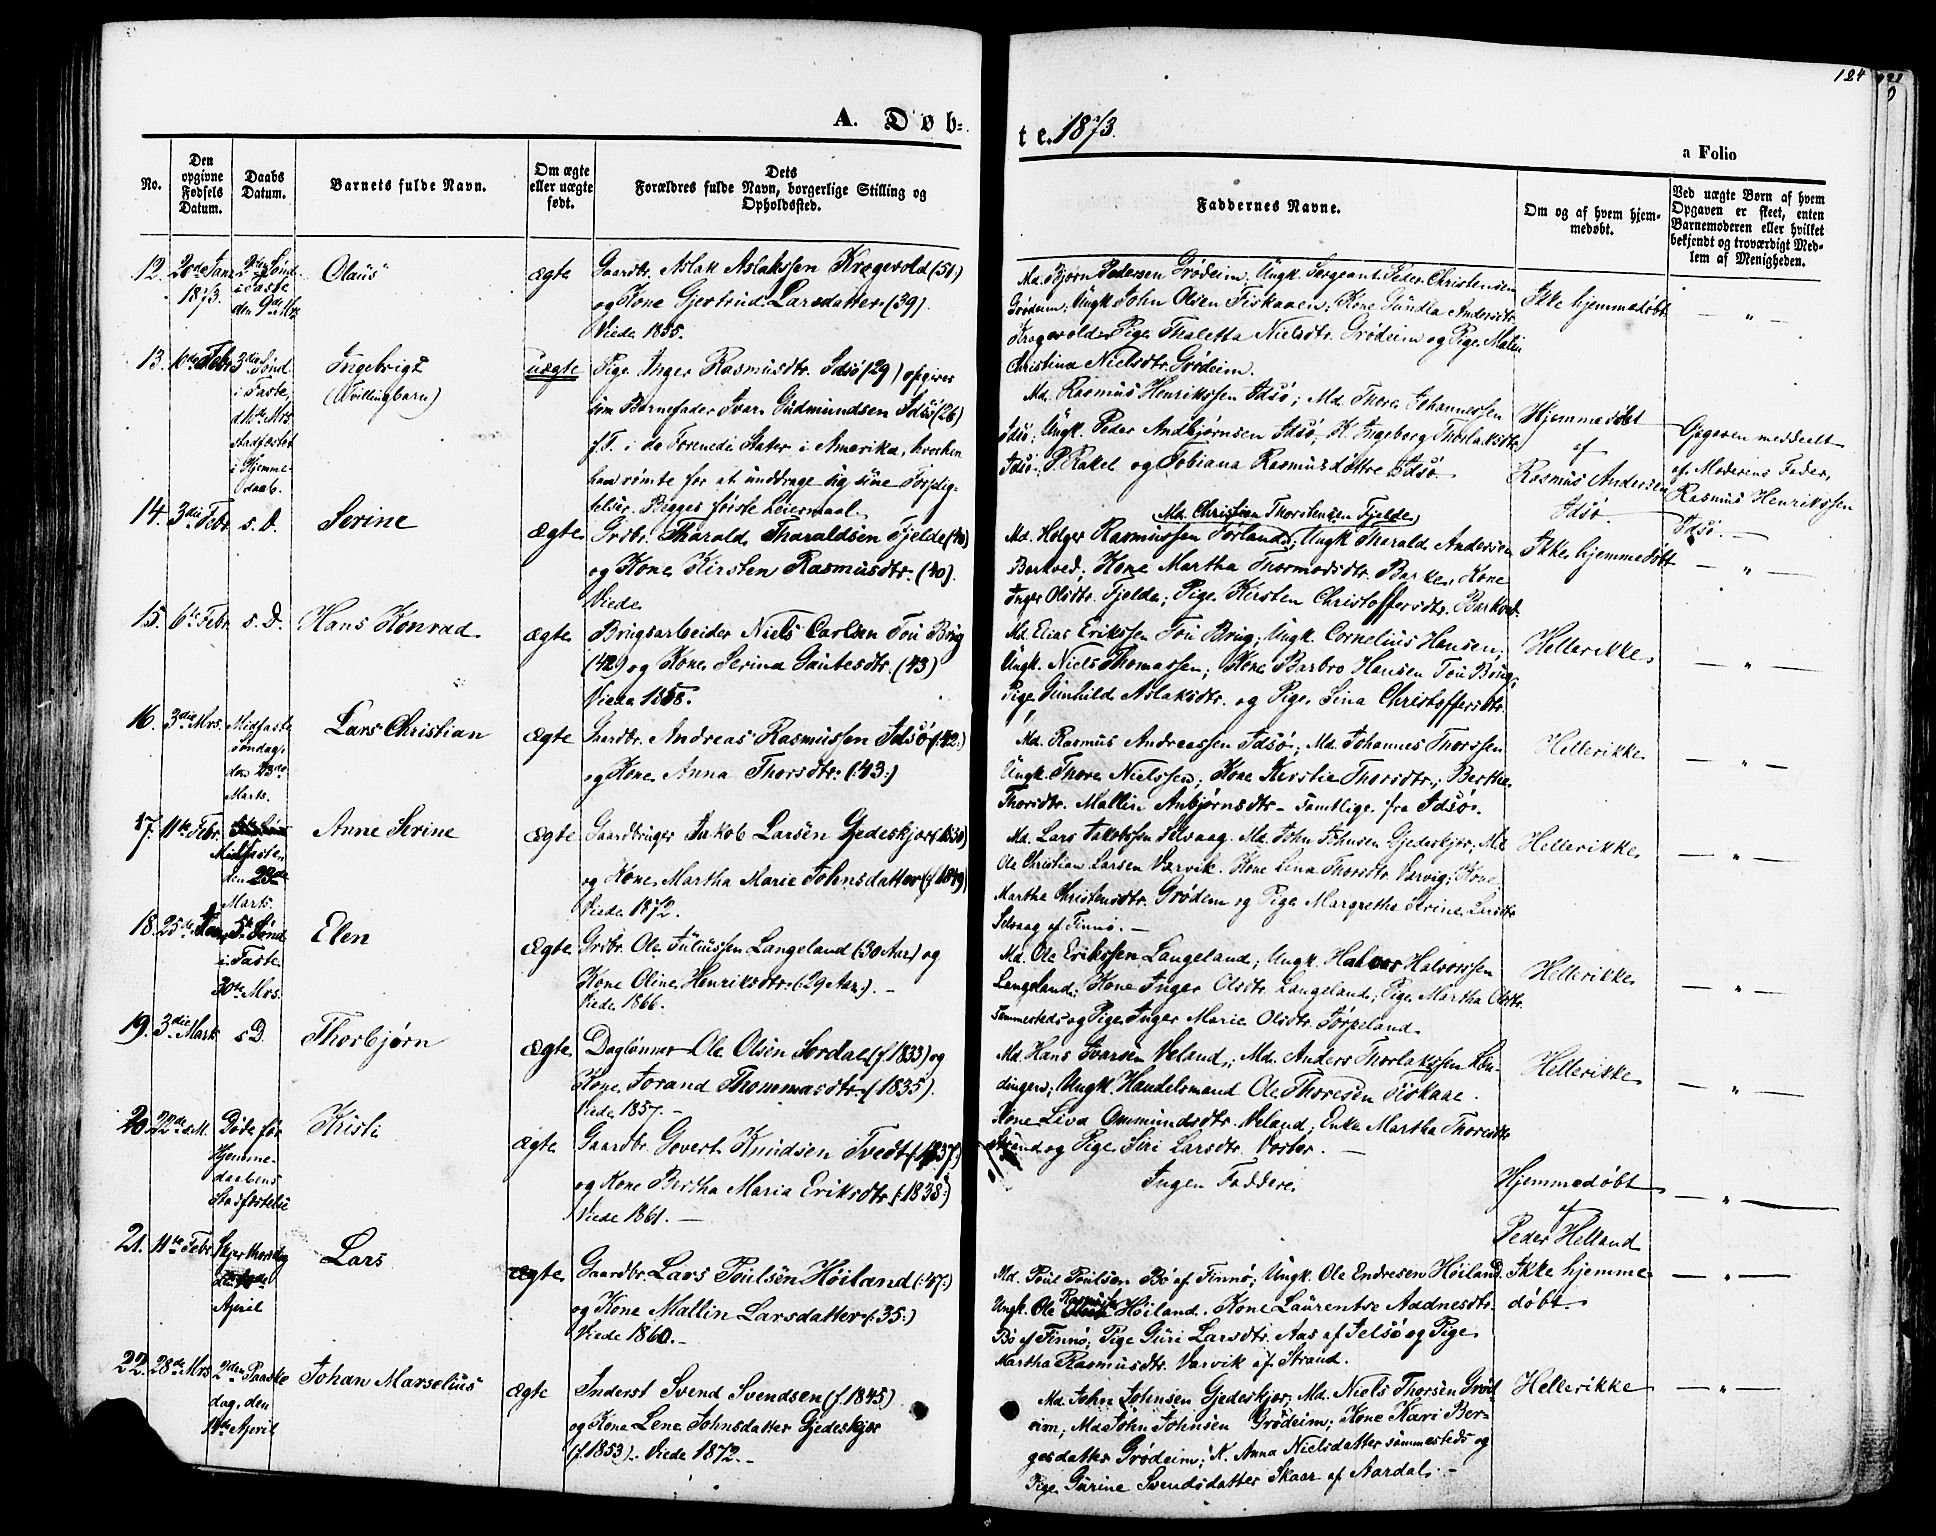 124
A. Døb-
te. 1873.
a Folio
No.
Den opgivne Fødsels Datum.
Daabs Datum.
Barnets fulde Navn.
Om ægte eller uægte født.
Dets Forældres fulde Navn, borgerlige Stilling og Opholdssted.
Faddernes Navne.
Om og af hvem hjem-
medøbt.
Ved uægte Børn af hvem
Opgaven er skeet, enten
Barnemoderen eller hvilket
bekjendt og troværdigt Med-
lem af Menigheden.
12. 20de Jan. 1873.
2den Sønd. i Faste den 9de Mrs
Olaus
ægte
Gaardbr. Aslak Aslaksen Kragevold (51.)
og Kone Gjertrud Larsdatter (39).
Viede 1855.
Md. Bjørn Pedersen Grødeim; Ungk. Sergeant Peder Christensen
Grødem; Ungk. John Olsen Fiskaaen; Kone Gundla Andersdtr.
Kragevold; Pige Thaletta Nielsdtr. Grødeim og Pige Malin
Christina Nielsdtr. Grødeim.
Ikke hjemmedøbt
— " —
13.
Febr
3die Sønd
i Faste,
d. Mrs.
stadfæstet
i Hjemme-
daab.
Ingebrigt
(Tvillingbarn)
uægte
Pige Inger Rasmusdtr. Idsø (29) opgives
som Barnefader Ivar Gudmundsen Idsø (26)
f.T. i de Forenede Stater i Amerika, hvorhen
han rømte for at unddrage sig sine Forplig-
telser. Begges første Leiermaal.
Md. Rasmus Henrikssen Idsø; Md. Thore Johannessen
Idsø; Ungk. Peder Andbjørnsen Idsø; K. Ingeborg Thorlaksdtr
Idsø. P. Rakel og Tobiana Rasmusdøttre Idsø
Hjemmedøbt
af
Rasmus Andersen
Idsø.
Opgaven meddeelt
af Moderens Fader,
Rasmus Henrikssen
Idsø. —
14. 3die Febr
s. D.
Serine
ægte
Grdbr. Tharald Tharaldsen Fjelde (40)
og Kone Kirsten Rasmusdtr. (40).
Viede
Md. Christen Thorstensen Fjelde
Md. Holger Rasmussen Førland; Ungk Tharald Andersen
Barkved; Kone Martha Thormodsdtr. Barke, Kone
Inger Olsdtr. Fjelde; Pige Kirsten Christoffersdtr. Barkved.
Ikke hjemmedøbt
— " —
15. 6te Febr
s. D.
Hans Konrad
ægte
Brugsarbeider Niels Carlsen Tou Brug
(42) og Kone Serina Gautesdtr. (43)
Viede 1858.
Md. Elias Erikssen Tou Brug; Ungk. Cornelius Hansen;
Ungk. Niels Thomassen; Kone Barbro Hansen Tou Brug;
Pige Gunhild Aslaksdtr. og Pige Sina Christoffersdtr.
Hellerikke
— " —
16. 3die Mrs.
Midfaste
Søndag,
den 23de
Marts.
Lars Christian
ægte
Gaardbr. Andreas Rasmussen Idsø (:42.)
og Kone Anna Thorsdtr. (:43:)
Md. Rasmus Andreassen Idsø; Md. Johannes Thorssen
Ungk. Thore Nielssen; Kone Kirstie Thorsdtr.; Berthe
Thorsdtr. Mallin Anbjørnsdtr – samtlige fra Idsø.
Hellerikke
— " —
17. 11te Febr.
Midfaste
den 23de
Marts.
Anne Serine
ægte
Gaardbruger Jakob Larsen Gjedeskjær (f. 1850)
og Kone Martha Marie Johnsdatter (f 1849)
Viede 1872.
Md. Lars Jakobssen Selvaag. Md. John Johnsen Gjedeskjær; Md
Ole Christian Larsen Varvik. Kone Lina Thorsdtr. Varvig; Kone
Martha Christensdtr. Grødem og Pige Margrethe Serine Larsdtr
Selvaag af Finnø. —
Hellerikke
— " —
18. 25de
5te Sønd
i Faste
30te Mrs.
Elen
ægte
Grdbr. Ole Juliussen Langeland (30 Aar) og
Kone Oline Henriksdtr. (:29 Aar.). —
Viede 1866.
Md. Ole Erikssen Langeland; Ungk. Halvor Halvorssen
Langeland; Kone Inger Olsdtr. Langeland; Pige Martha Olsdtr.
Sammesteds og Pige Inger Marie Olsdtr. Tørpeland.
Hellerikke
— " —
19. 3die Mart
s D.
Thorbjørn
ægte
Daglønner Ole Olsen Sordal (f. 1833) og
Kone Torand Thommasdtr. (1835).
Viede 1857. —
Md. Hans Ivarsen Veland; Md. Anders Thorlakssen
Ungk. Handelsmand Ole Thoresen Fiskaae.
Kone Liva Ommundsdtr. Veland; Enke Martha Thoresdtr
Strand og Pige Siri Larsdtr. Voster. —
Hellerikke
— " —
20. 22de s.M.
Døde før
Hjemme-
daabens
Stadfæstelse
Kristi
ægte
Gaardbr. Govert Knudsen Tvedt (f. 1837)
og Kone Bertha Maria Eriksdtr. (:1838:)
Viede 1861. —
Ingen Faddere
Hjemmedøbt
af
Peder Helland
— " —
21. 11te Febr.
Skjærthorsdag
April
Lars
ægte
Gaardbr Lars Poulsen Høiland (:47.)
og Kone Mallin Larsdatter (:35:)
Viede 1860. —
Md. Poul Poulsen Bø af Finnø; Ungk. Ole Endresen Høiland.
Ungk. Ole Rasmussen Høiland. Kone Laurentse Aadnesdtr.
Bø af Finnø; Pige Guri Larsdtr. Aas af Jelsø og Pige
Martha Rasmusdtr. Varvik af Strand.
Ikke hjemme
døbt
— " —
22. 28de Mrs
2den Paaske
dag, den
April
Johan Marselius
ægte
Inderst Svend Svendsen (f. 1845)
og Kone Lene Johnsdatter Gjedeskjær
(f. 1853). Viede 1872. —
Md. John Johnsen Gjedeskjær, Md. Niels Thorsen Grød
eim; Md John Johnsen Grødeim; Kone Kari Ber-
gesdatter Grødeim; K. Anna Nielsdatter sammesteds og
Pige Gurine Svendsdatter Skaar af Aardal. —
Hellerikke
— " —